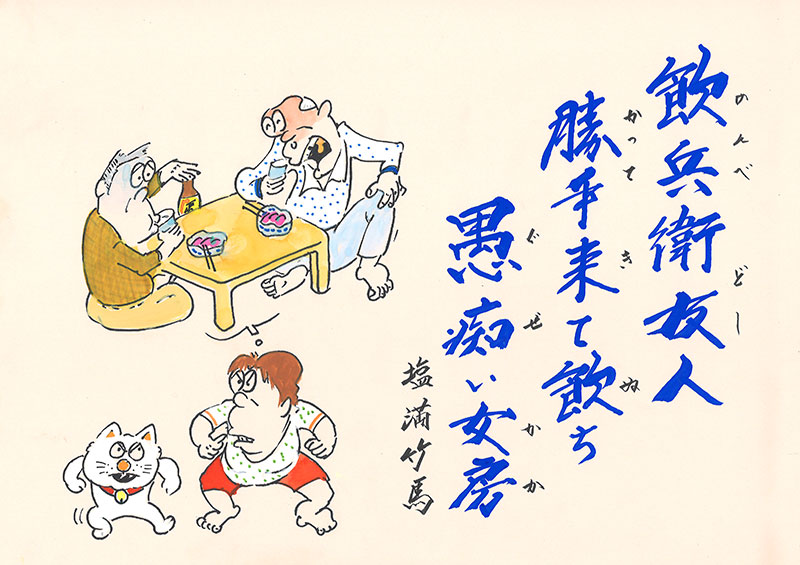 飲兵衛友人
のんべ どし
勝手来て飲ち
かって き ぬ
愚痴い女房
ぐぜ かか
塩満竹馬